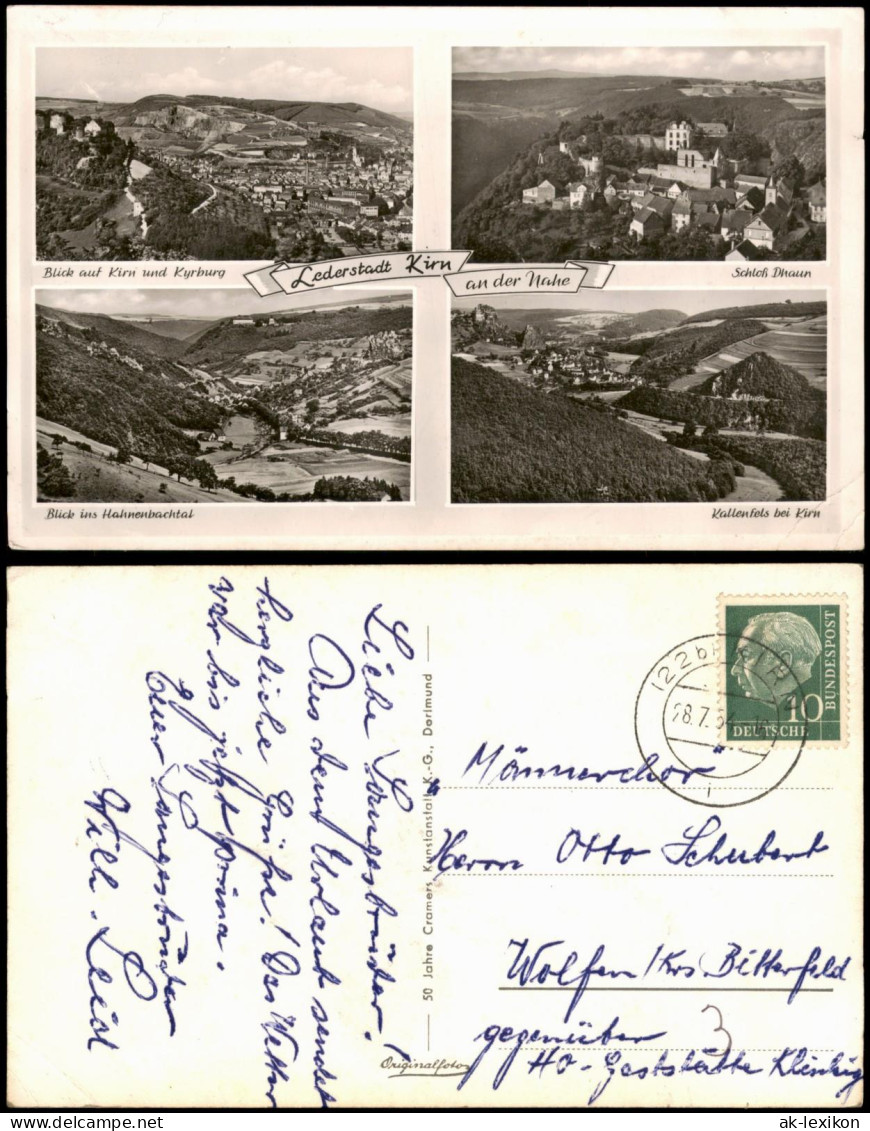 Blick auf Kirn und Kyrburg
Lederstadt Kirn
an der Nahe
Schloß Dhaun
Blick ins Hahnenbachtal
Kallenfels bei Kirn
Liebe Sangesbrüder!
Aus dem Urlaub sendet
herzliche Grüße! Das Wetter
war bis jetzt prima.
Euer Sangesbruder
Willi
50 Jahre Cramers Kunstanstalt K.-G., Dortmund
Originalfotos
DEUTSCHE
BUNDESPOST
10
28.7.54
"Männerchor"
Herrn Otto Schubert
Wolfen/Krs Bitterfeld
gegenüber
HO-Gaststätte
3
ak-lexikon
delcampe.net